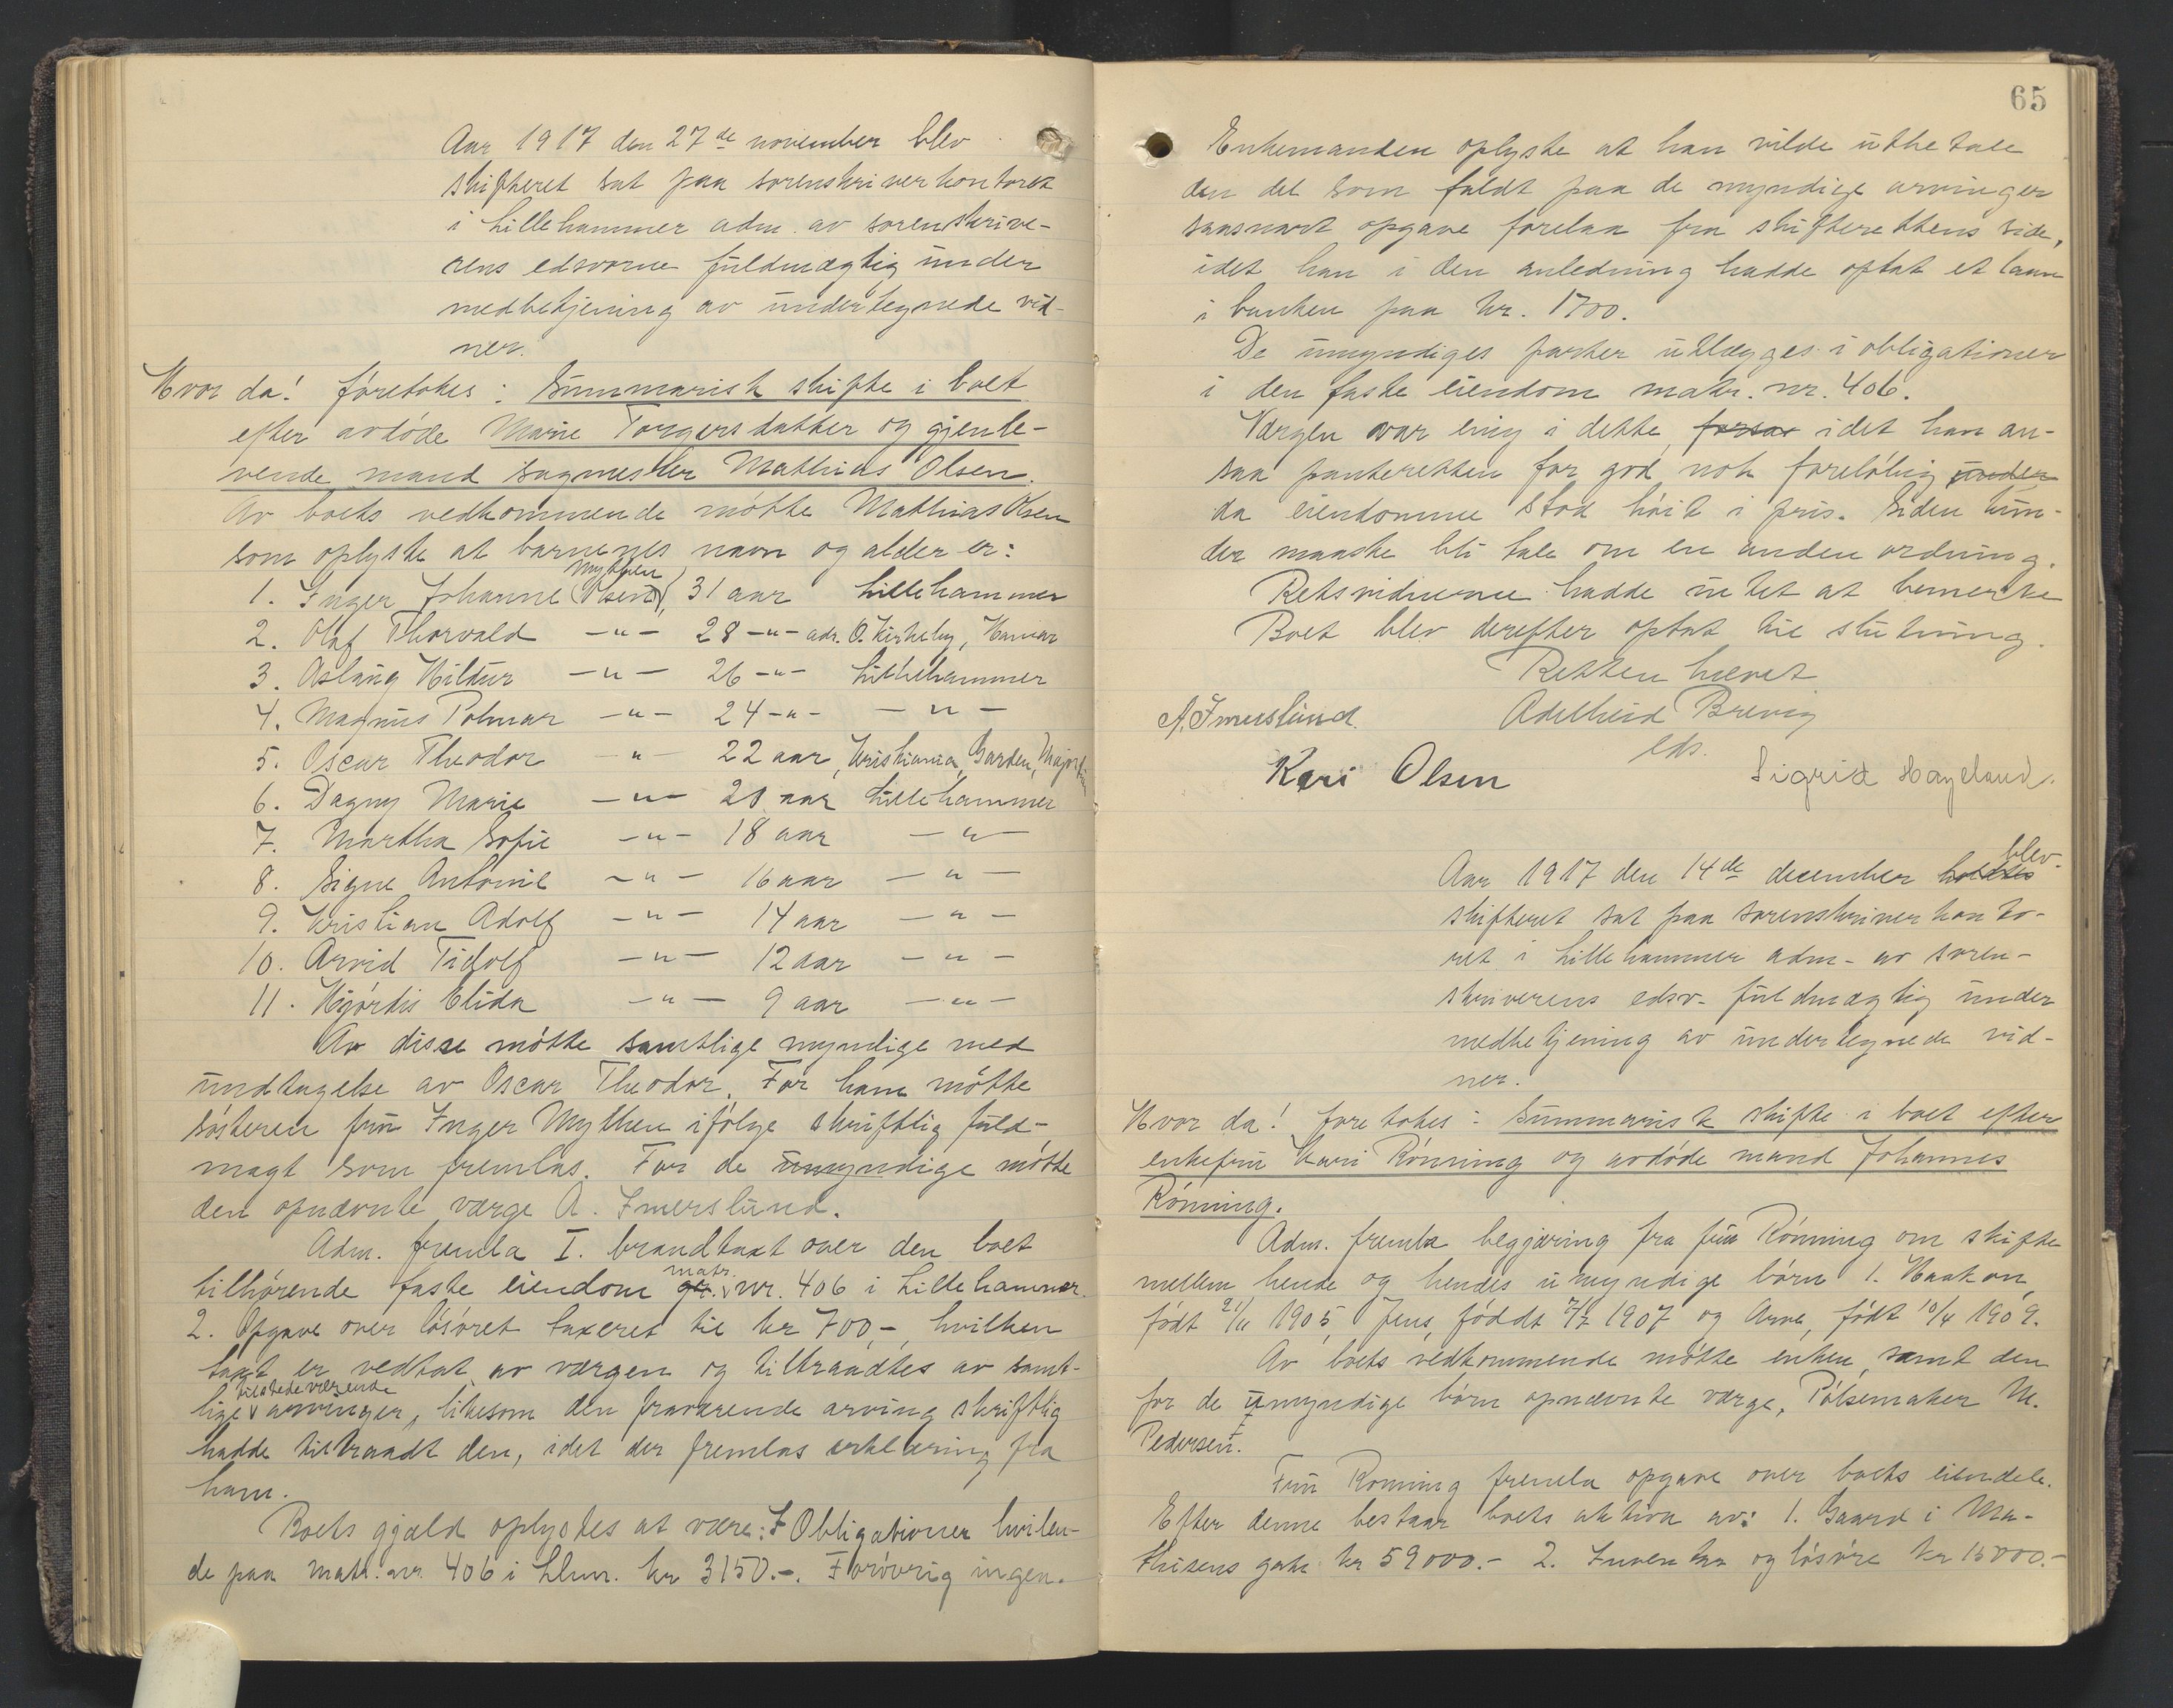 Aar 1917 den 27de november blev
skifteret sat paa sorenskriverkontoret
i Lillehammer adm. av sorenskrive-
rens edsvorne fuldmægtig under
medbetjening av undertegnede vid-
ner.
Hvor da! foretokes: Summarisk skifte i boet
efter avdøde Marie Torgersdatter og gjenle-
vende mand sagmester Mathias Olsen.
Av boets vedkommende møtte Mathias Olsen
som oplyste at barnenes navn og alder er:
Mythen
1. Inger Johanne (Olsen), 31 aar Lillehammer
2. Olaf Thorvald -"- 28 -"- adr. O. Kirkeby, Hamar
3. Aslaug Hildur -"- 26 -"- Lillehammer
4. Magnus Polmar -"- 24 -"- -"-
5. Oscar Theodor -"- 22 aar, Kristiania, Garden,
6. Dagny Marie -"- 20 aar Lillehammer
7. Martha Sofie -"- 18 aar -"-
8. Signe Antonie -"- 16 aar -"-
9. Kristian Adolf -"- 14 aar -"-
10. Arvid Tidolf -"- 12 aar -"-
11. Hjørdis Elida -"- 9 aar -"-
Av disse møtte samtlige myndige med
undtagelse av Oscar Theodor. For ham møtte
søsteren fru Inger Mythen ifølge skriftlig fuld-
magt som fremlas. For de umyndige møtte
den opnævnte værge A. Imerslund.
Adm. fremla I. brandtaxt over den boet
matr.
tilhørende faste eiendom gr. nr. 406 i Lillehammer.
2. Opgave over løsøret taxeret til kr 700,-, hvilken
taxt er vedtat av værgen og tiltraadtes av samt-
tilstedeværende
lige arvinger, likesom den fraværende arving skriftlig
hadde tiltraadt den, idet der fremlas erklæring fra
ham.
Boets gjæld oplystes at være: I Obligationer hvilen-
de paa matr. nr. 406 i Lhmr. kr 3150.-. Forøvrig ingen.
65
Enkemanden oplyste at han vilde utbetale
den del som faldt paa de myndige arvinger
saasnart opgave forelaa fra skifterettens side,
idet han i den anledning hadde optat et laan
i banken paa kr. 1700.
De umyndiges parter utlægges i obligationer
i den faste eiendom matr. nr. 406.
Værgen var enig i dette, forsaa idet han an-
saa panteretten for god nok foreløbig under
da eiendomme stod høit i pris. Siden kun-
der maaske bli tale om en anden ordning.
Retsvidnerne hadde intet at bemerke
Boet blev derefter optat til slutning.
Retten hævet
A. Imerslund. Adelheid Brevig
eds.
Kari Olsen Sigrid Hageland.
blev
Aar 1917 den 14de december holdtes
skifteret sat paa sorenskriverkonto-
ret i Lillehammer adm. av soren-
skriverens edsv. fuldmægtig under
medbetjening av undertegnede vid-
ner.
Hvor da! foretokes: Summarisk skifte i boet efter
enkefru Kari Rønning og avdøde mand Johannes
Rønning.
Adm. fremla begjæring fra fru Rønning om skifte
mellem hende og hendes umyndige børn 1. Haakon,
født 21/11 1905, Jens, føddt 7/7 1907 og Arne, født 10/4 1909.
Av boets vedkommende møtte enken, samt den
for de umyndige børn opnævnte værge, Pølsemaker M.
Pedersen.
Fru Rønning fremla opgave over boets eiendele.
Efter denne bestaar boets aktiva av: 1. Gaard i Ma-
thisens gate kr 59000.- 2. Inventar og løsøre kr 15000.-